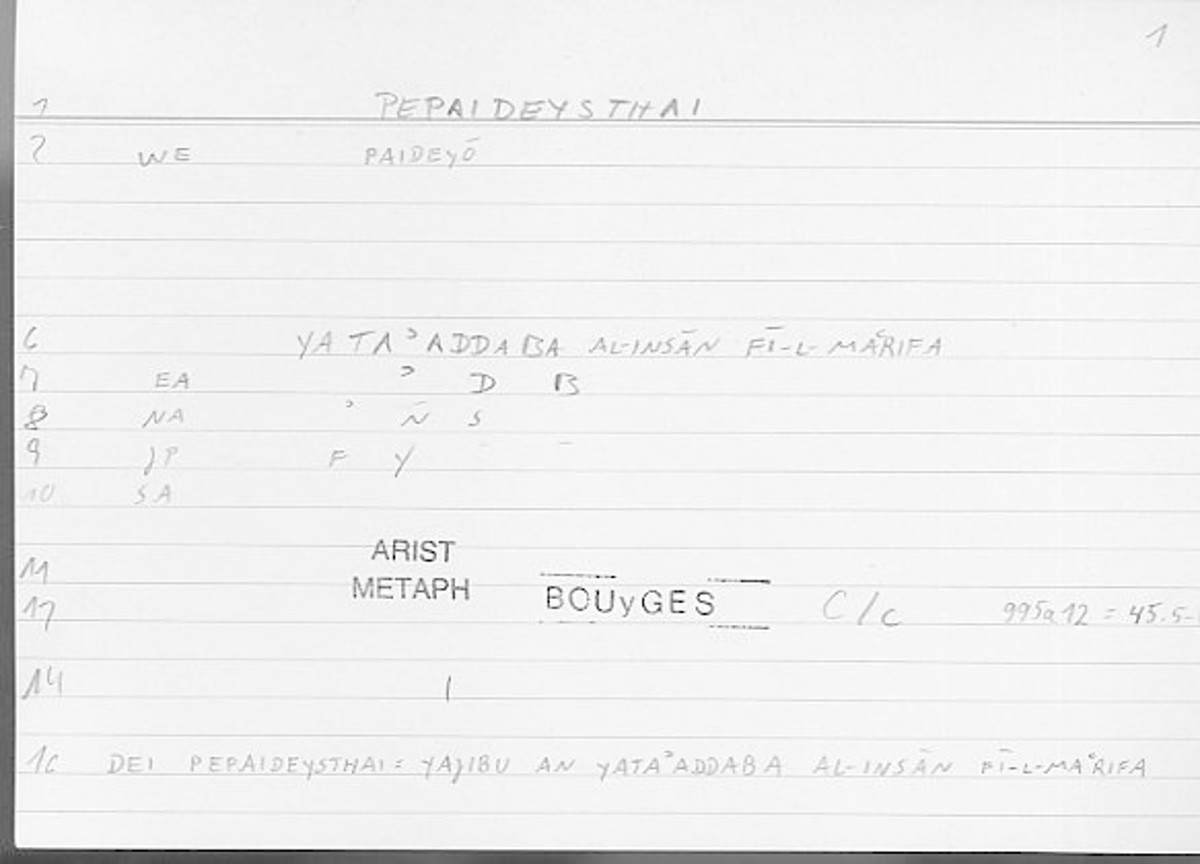 1
1 PEPAIDEYSTHAI
2 WE PAIDEYŌ
6 YATAʾADDABA AL-INSĀN FĪ-L-MAʿRIFA
7 EA ʾ D B
8 NA ʾ N S
9 JP F Y
10 SA
ARIST
11 METAPH
12 BOUyGES C/c 995a12 = 45.5-
14 1
16 DEI PEPAIDEYSTHAI = YAJIBU AN YATAʾADDABA AL-INSĀN FĪ-L-MAʿRIFA